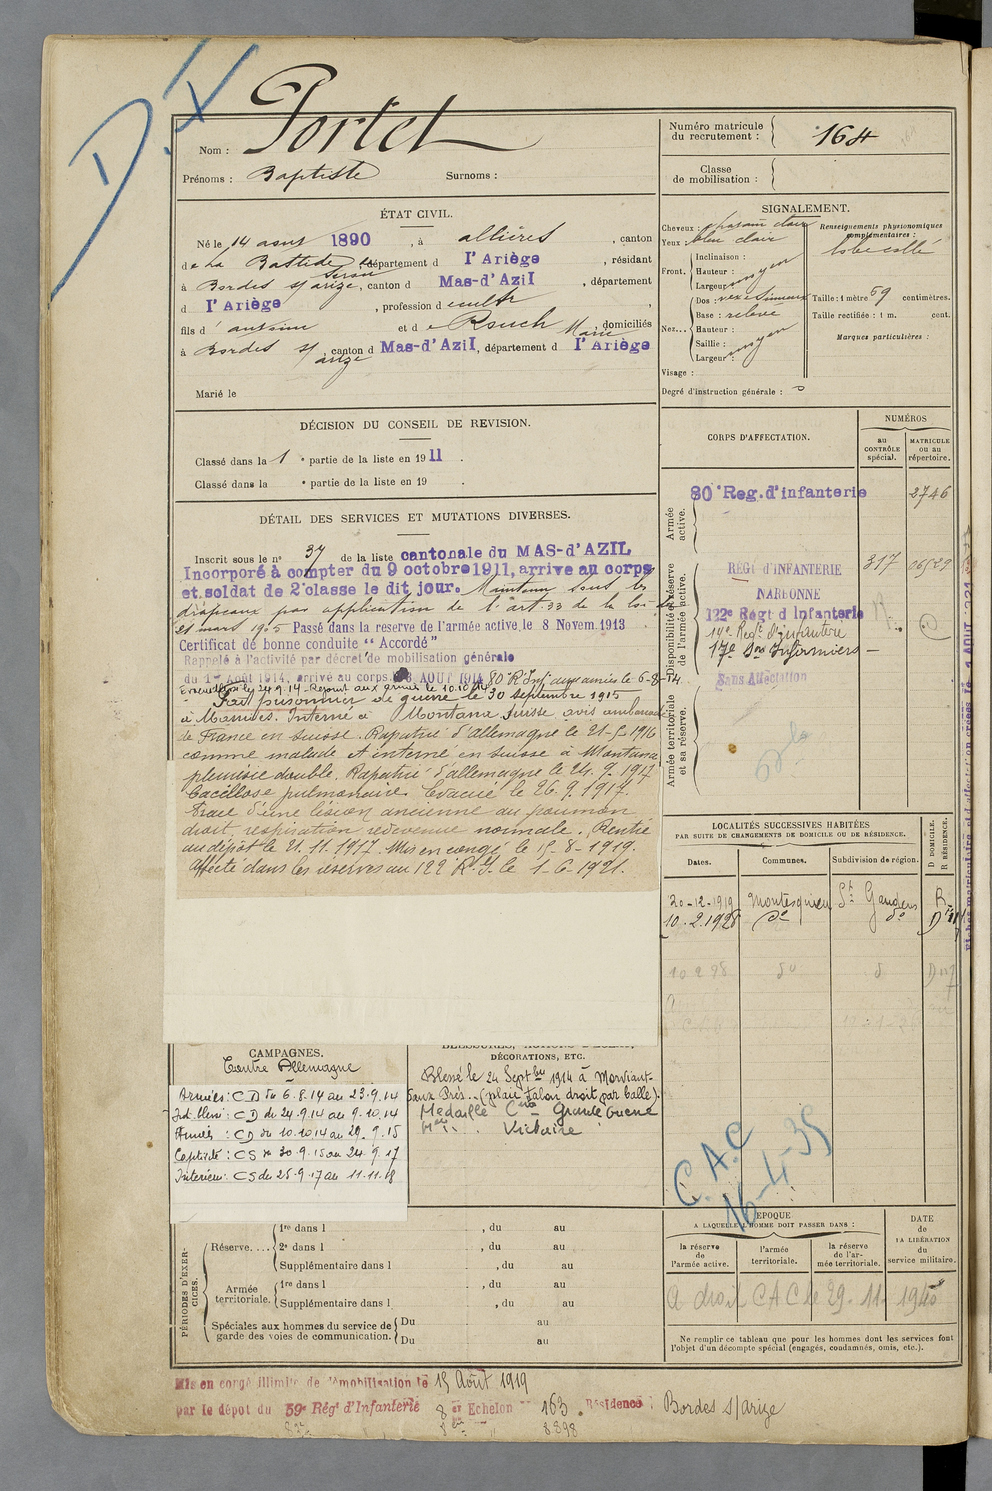 D X
Nom : Portet
Prénoms : Baptiste Surnoms :
Numéro matricule du recrutement : 164
Classe de mobilisation :
ÉTAT CIVIL.
Né le 14 aout 1890, à allières, canton
de La Bastide Serou, département d l'Ariège, résidant
à Bordes s/ arize, canton d Mas-d'Azil, département
d l'Ariège, profession d cultr
fils d' antoine et de Rouch Marie, domiciliés
à Bordes s/ arize, canton d Mas-d'Azil, département d l'Ariège
Marié le
SIGNALEMENT.
Cheveux : chatain clair
Yeux : bleu clair
Front. Inclinaison :
Hauteur : moyen
Largeur :
Nez... Dos : vexe Sinueux
Base : relevé
Hauteur :
Saillie : moyen
Largeur :
Visage :
Renseignements physionomiques complémentaires :
lobe collé
Taille : 1 mètre 69 centimètres.
Taille rectifiée : 1 m. cent.
Marques particulières :
Degré d'instruction générale : 3
DÉCISION DU CONSEIL DE REVISION.
Classé dans la 1e partie de la liste en 1911.
Classé dans la e partie de la liste en 19 .
DÉTAIL DES SERVICES ET MUTATIONS DIVERSES.
Inscrit sous le n° 37 de la liste cantonale du MAS-d'AZIL
Incorporé à compter du 9 octobre 1911, arrive au corps
et soldat de 2e classe le dit jour. Maintenu sous les
drapeaux par application de l'art 33 de la loi du
21 mars 1905 Passé dans la reserve de l'armée active, le 8 Novem. 1913
Certificat de bonne conduite "Accordé"
Rappelé à l'activité par décret de mobilisation générale
du 1er Août 1914, arrivé au corps le 3 AOUT 1914 80e R. Inf aux armées le 6-8-14.
Evacué blessé le 24.9.14. Rejoint aux armées le 10.10.14
Fait prisonnier de guerre le 30 septembre 1915
à Massiges. Interné à Montana Suisse avis ambassade
de France en Suisse. Rapatrié d'allemagne le 21-5-1916
comme malade et interné en Suisse à Montana
pleurésie double. Rapatrié d'allemagne le 24. 9. 1917
bacillose pulmonaire. Evacué le 26. 9. 1917.
Trace d'une lésion ancienne au poumon
droit, respiration redevenue normale. Rentré
au dépôt le 21. 11. 1917. Mis en congé le 15-8-1919.
Affecté dans les réserves au 122e R. I. le 1-6-1921.
CORPS D'AFFECTATION.
NUMÉROS
au CONTRÔLE spécial.
MATRICULE ou au répertoire.
Armée active.
80e Reg. d'infanterie 2746
Disponibilité et réserve de l'armée active.
REGt d'INFANTERIE 317 06529
NARBONNE
122e Régt d Infanterie
14e Regt d'infanterie
17e Son Infirmiers
Sans Affectation
Armée territoriale et sa réserve.
LOCALITÉS SUCCESSIVES HABITÉES
PAR SUITE DE CHANGEMENTS DE DOMICILE OU DE RÉSIDENCE.
Dates. Communes. Subdivision de région. D DOMICILE. R RÉSIDENCE.
20-12-1919 Montesquieu St Gaudens R
10.2.1928 do do D
CAMPAGNES.
Contre Allemagne
Armées : CD du 6.8.14 au 23.9.14
Int. blessé : CD du 24.9.14 au 9.10.14
Armées : CD du 10.10.14 au 29.9.15
Captivité : CS du 30.9.15 au 24.9.17
Intérieur : CS du 25.9.17 au 11.11.18
BLESSURES, ACTIONS D'ÉCLAT, DÉCORATIONS, ETC.
Blessé le 24 Septbre 1914 à
(plaie talon droit par balle).
Médaille Cive Grande Guerre
Victoire
C.A.C
16-4-35
PÉRIODES D'EXERCICES.
Réserve.... 1re dans l , du au
2e dans l , du au
Supplémentaire dans l , du au
Armée territoriale. 1re dans l , du au
Supplémentaire dans l , du au
Spéciales aux hommes du service de garde des voies de communication. Du au
Du au
ÉPOQUE
A LAQUELLE L'HOMME DOIT PASSER DANS :
la réserve de l'armée active.
l'armée territoriale.
la réserve de l'armée territoriale.
DATE de LA LIBÉRATION du service militaire.
A droit CAC le 29. 11. 1940
Ne remplir ce tableau que pour les hommes dont les services font l'objet d'un décompte spécial (engagés, condamnés, omis, etc.).
Mis en congé illimité de démobilisation le 15 Août 1919
par le dépôt du 59e Régt d'Infanterie 8e Echelon no 163. Résidence : Bordes s/arize